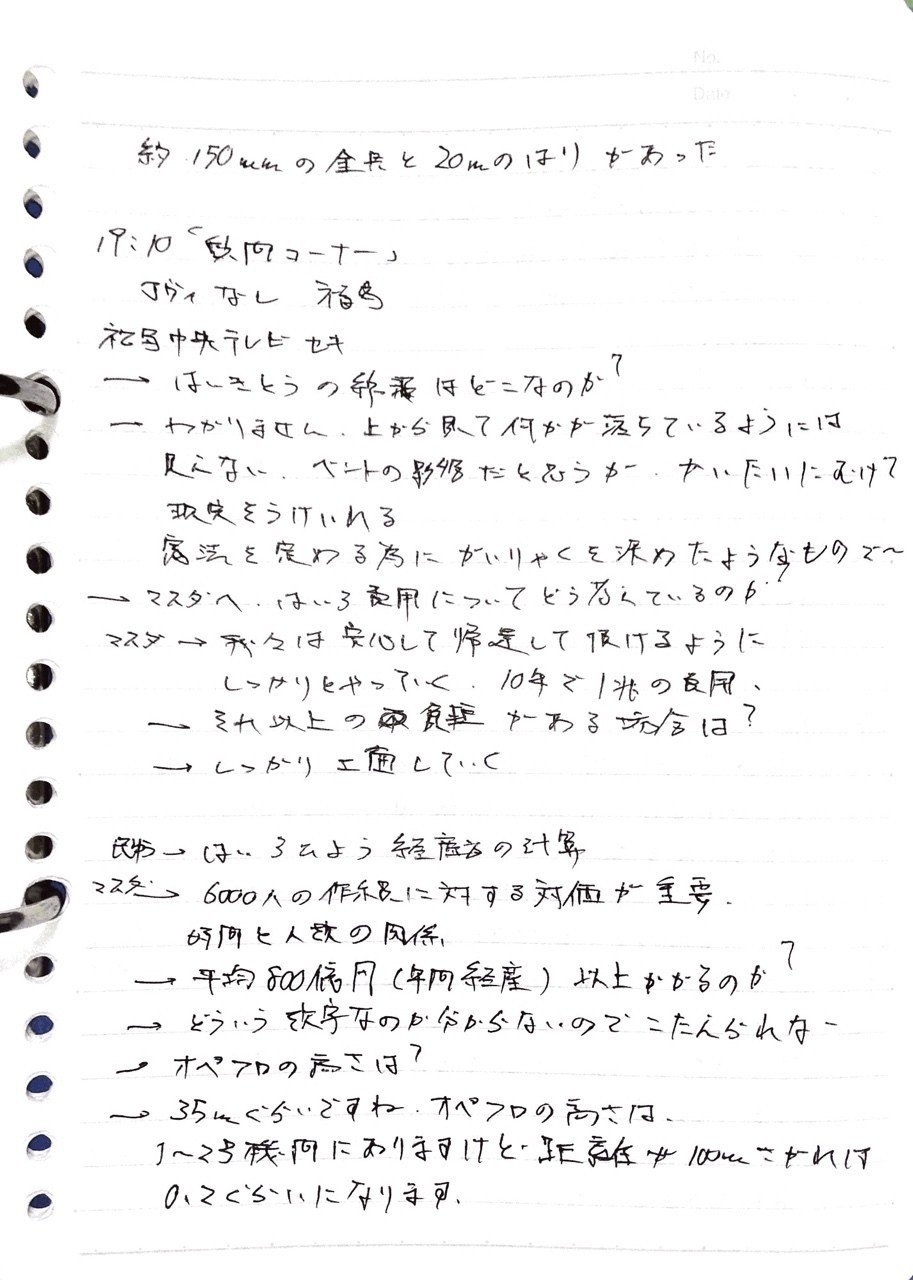 No.
Date
約150mmの全長と20mのはりがあった
19:10「質問コーナー」
なし 福島
福島中央テレビ セキ
→ はいきとうの はどこなのか?
→ わかりません、上から見て何かが落ちているようには
見えない、ベントの影響だと思うが、かいたいにむけて
現実をうけいれる
憲法を定める為にがいりゃくを決めたようなもので〜
→ マスダへ、はいろ費用についてどう考えているのか?
マスダ → 我々は安心して帰還して頂けるように
しっかりとやっていく、10年で1兆の費用、
→ それ以上の がある場合は?
→ しっかり工面していく
→ はいろひよう 経産省の計算
マスダ → 6000人の作業員に対する対価が重要.
時間と人数の関係、
→ 平均800億円(年間経産)以上かかるのか?
→ どういう数字なのか分からないのでこたえられなー
→ オペフロの高さは?
→ 35mぐらいですね.オペフロの高さは、
1〜2号機間にありますけど、距離が100mさがれば
0.2ぐらいになります.